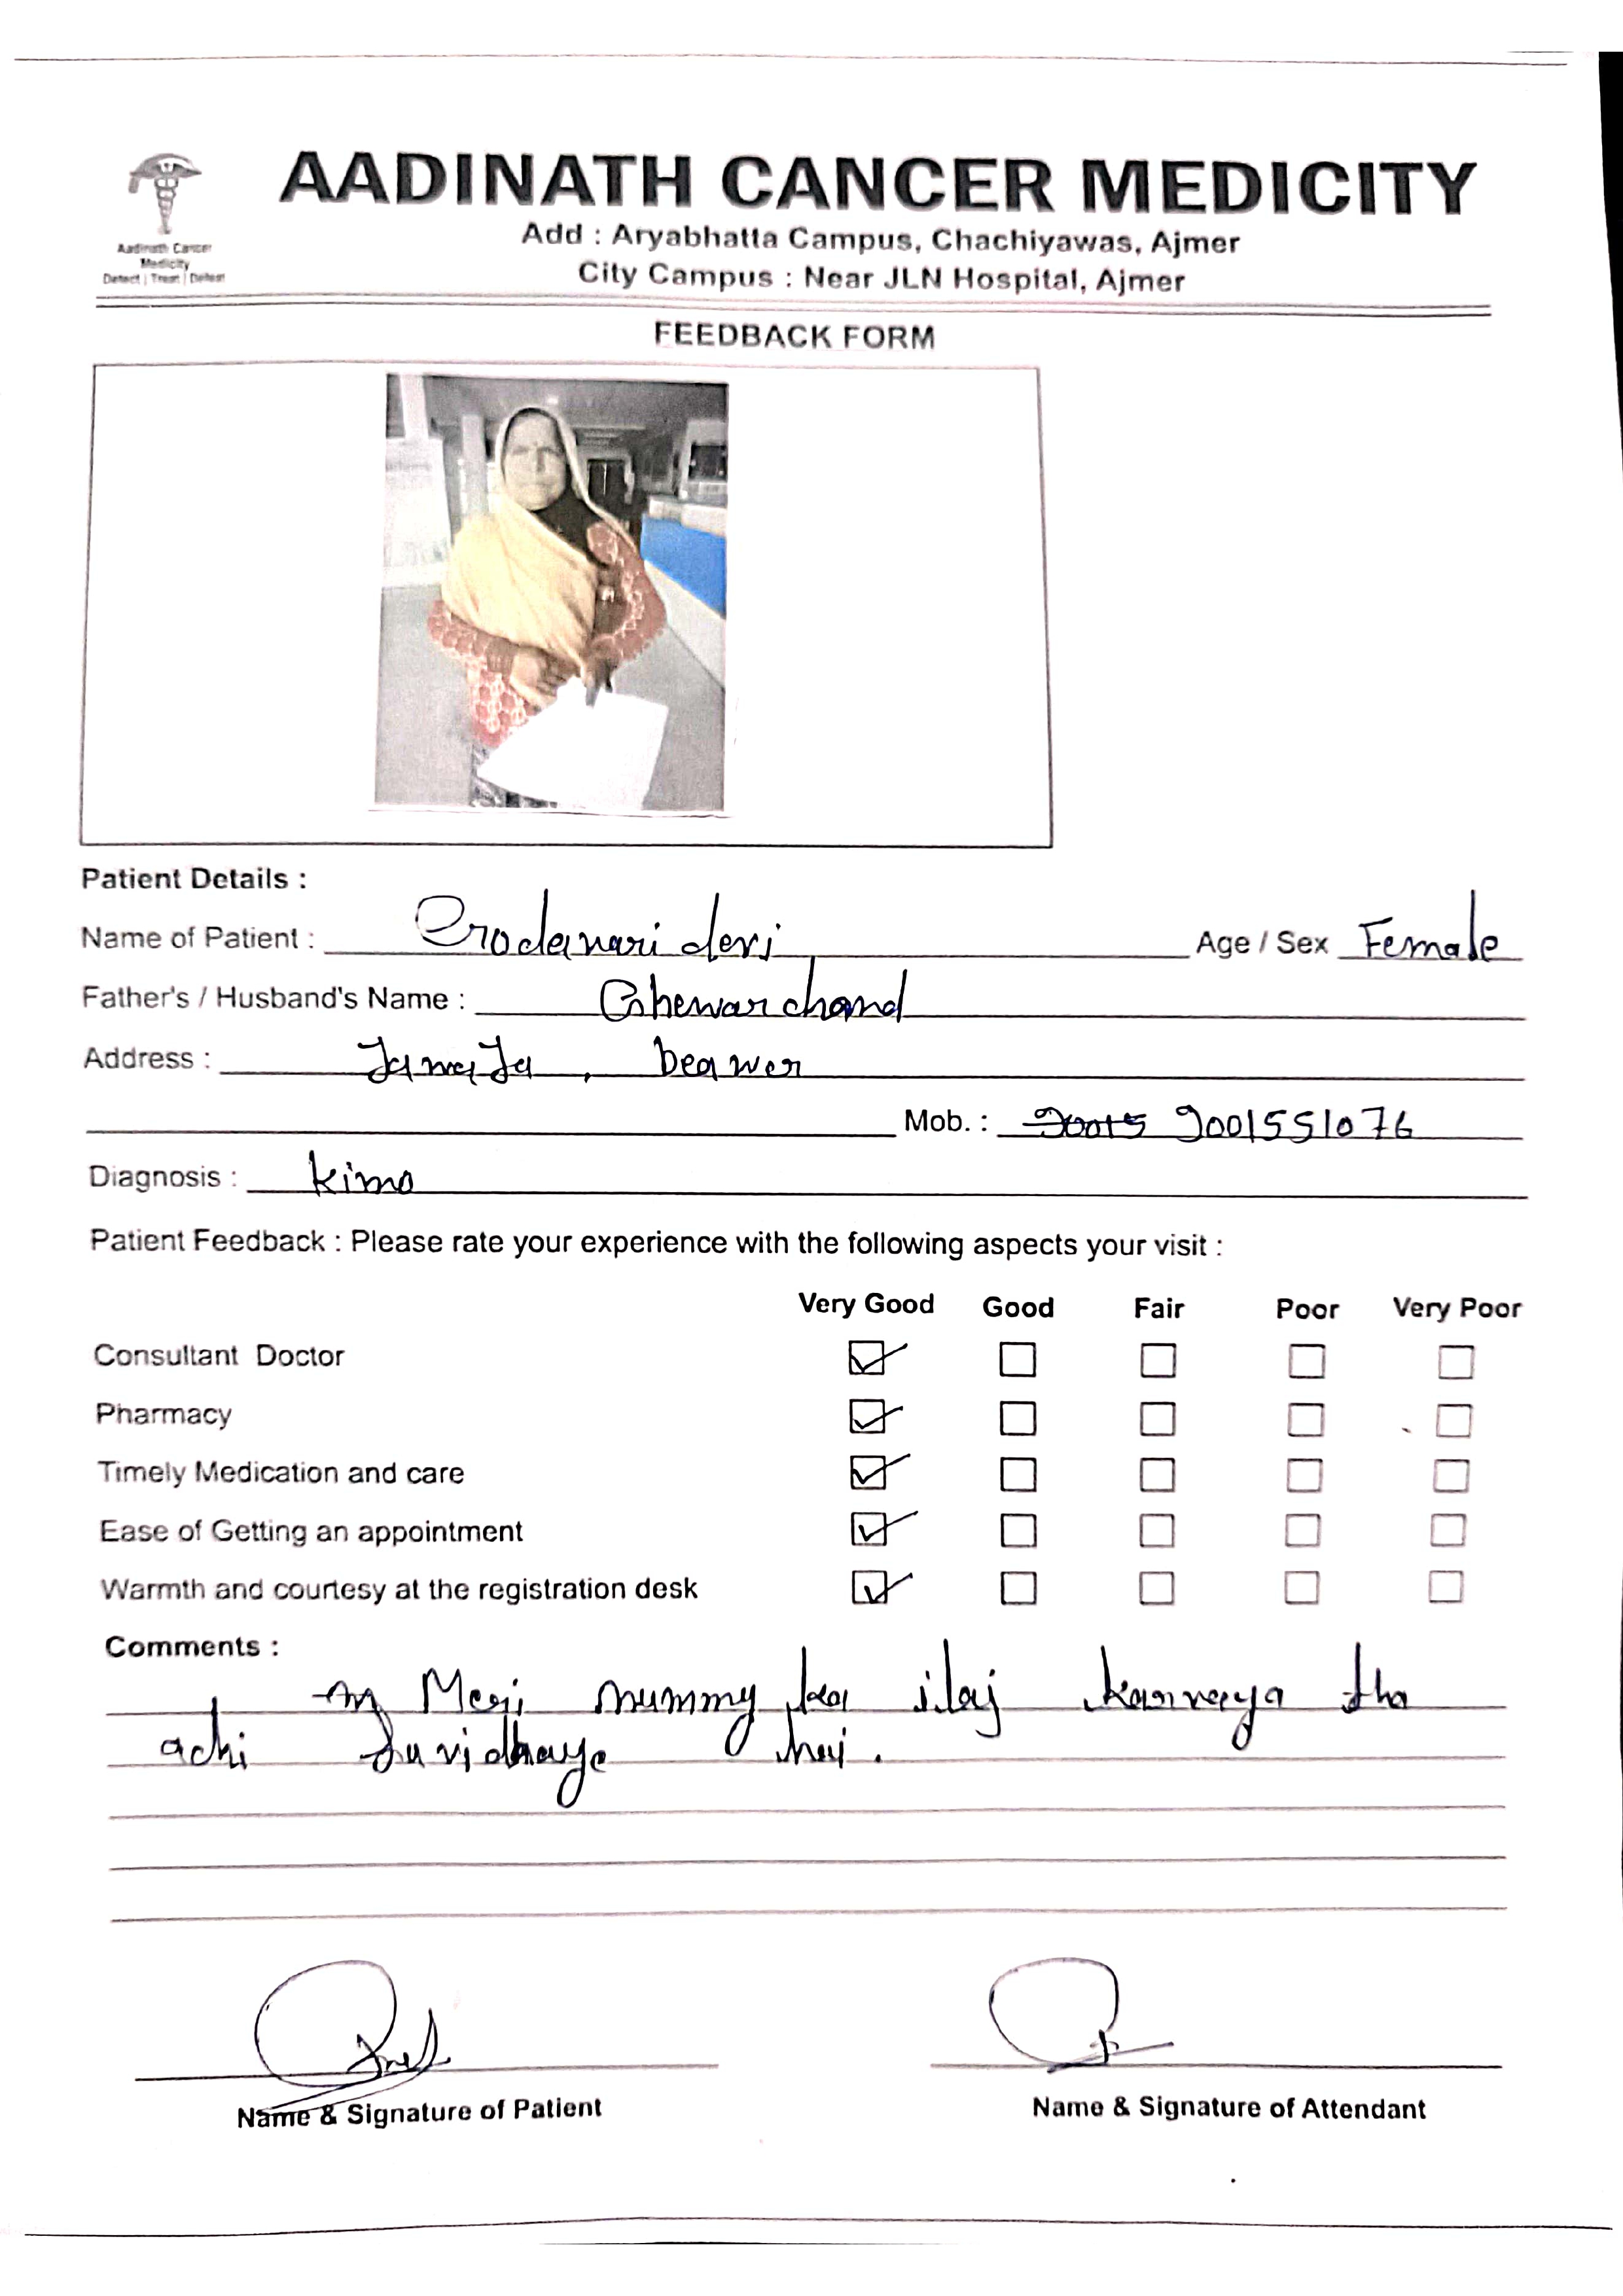 AADINATH CANCER MEDICITY
Aadinath Cancer
Medicity
Detect | Treat | Defeat
Add : Aryabhatta Campus, Chachiyawas, Ajmer
City Campus : Near JLN Hospital, Ajmer
FEEDBACK FORM
Patient Details :
Name of Patient : devi Age / Sex Female
Father's / Husband's Name : Ghewar chand
Address : Jawaja, beawer
Mob. : 9001551076
Diagnosis : kimo
Patient Feedback : Please rate your experience with the following aspects your visit :
Very Good Good Fair Poor Very Poor
Consultant Doctor
Pharmacy
Timely Medication and care
Ease of Getting an appointment
Warmth and courtesy at the registration desk
Comments :
Meri mummy ka ilaj karvaya tha
achi suvidhaye hai.
Name & Signature of Patient
Name & Signature of Attendant